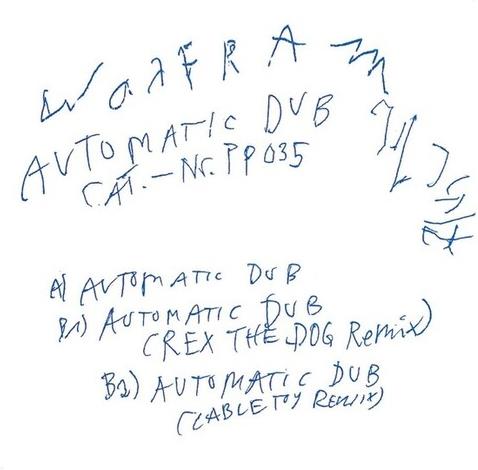 WOLFRAM
AUTOMATIC DUB
CAT.-Nr. PP035
A) AUTOMATIC DUB
B1) AUTOMATIC DUB
(REX THE DOG Remix)
B2) AUTOMATIC DUB
(CABLE TOY REMIX)